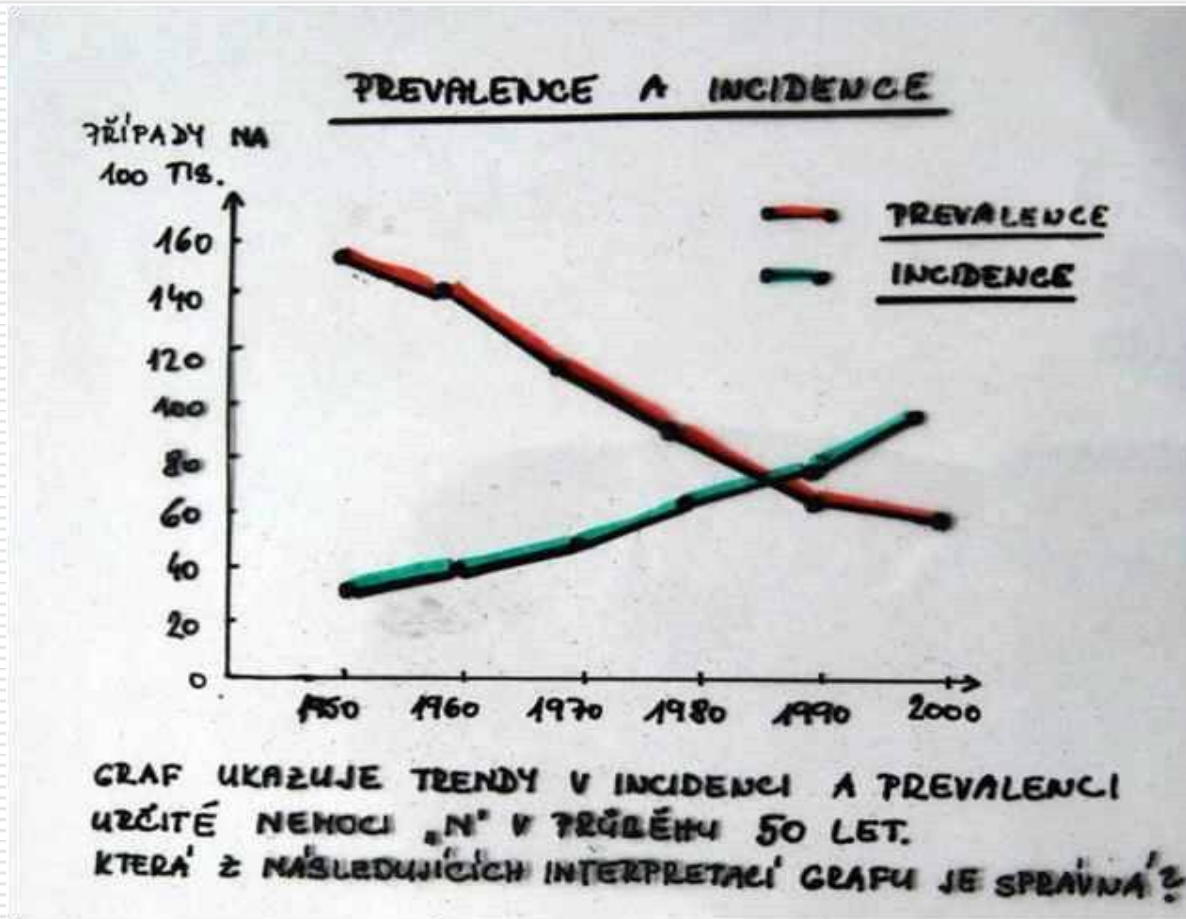 PREVALENCE A INCIDENCE
PŘÍPADY NA
100 TIS.
PREVALENCE
INCIDENCE
160
140
120
100
80
60
40
20
0
1950 1960 1970 1980 1990 2000
GRAF UKAZUJE TRENDY V INCIDENCI A PREVALENCI
URČITÉ NEMOCI „N" V PRŮBĚHU 50 LET.
KTERÁ Z NÁSLEDUJÍCÍCH INTERPRETACÍ GRAFU JE SPRÁVNÁ?